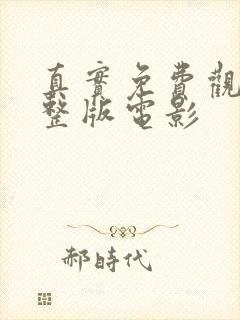 真實免費觀
整版電影
郝時代